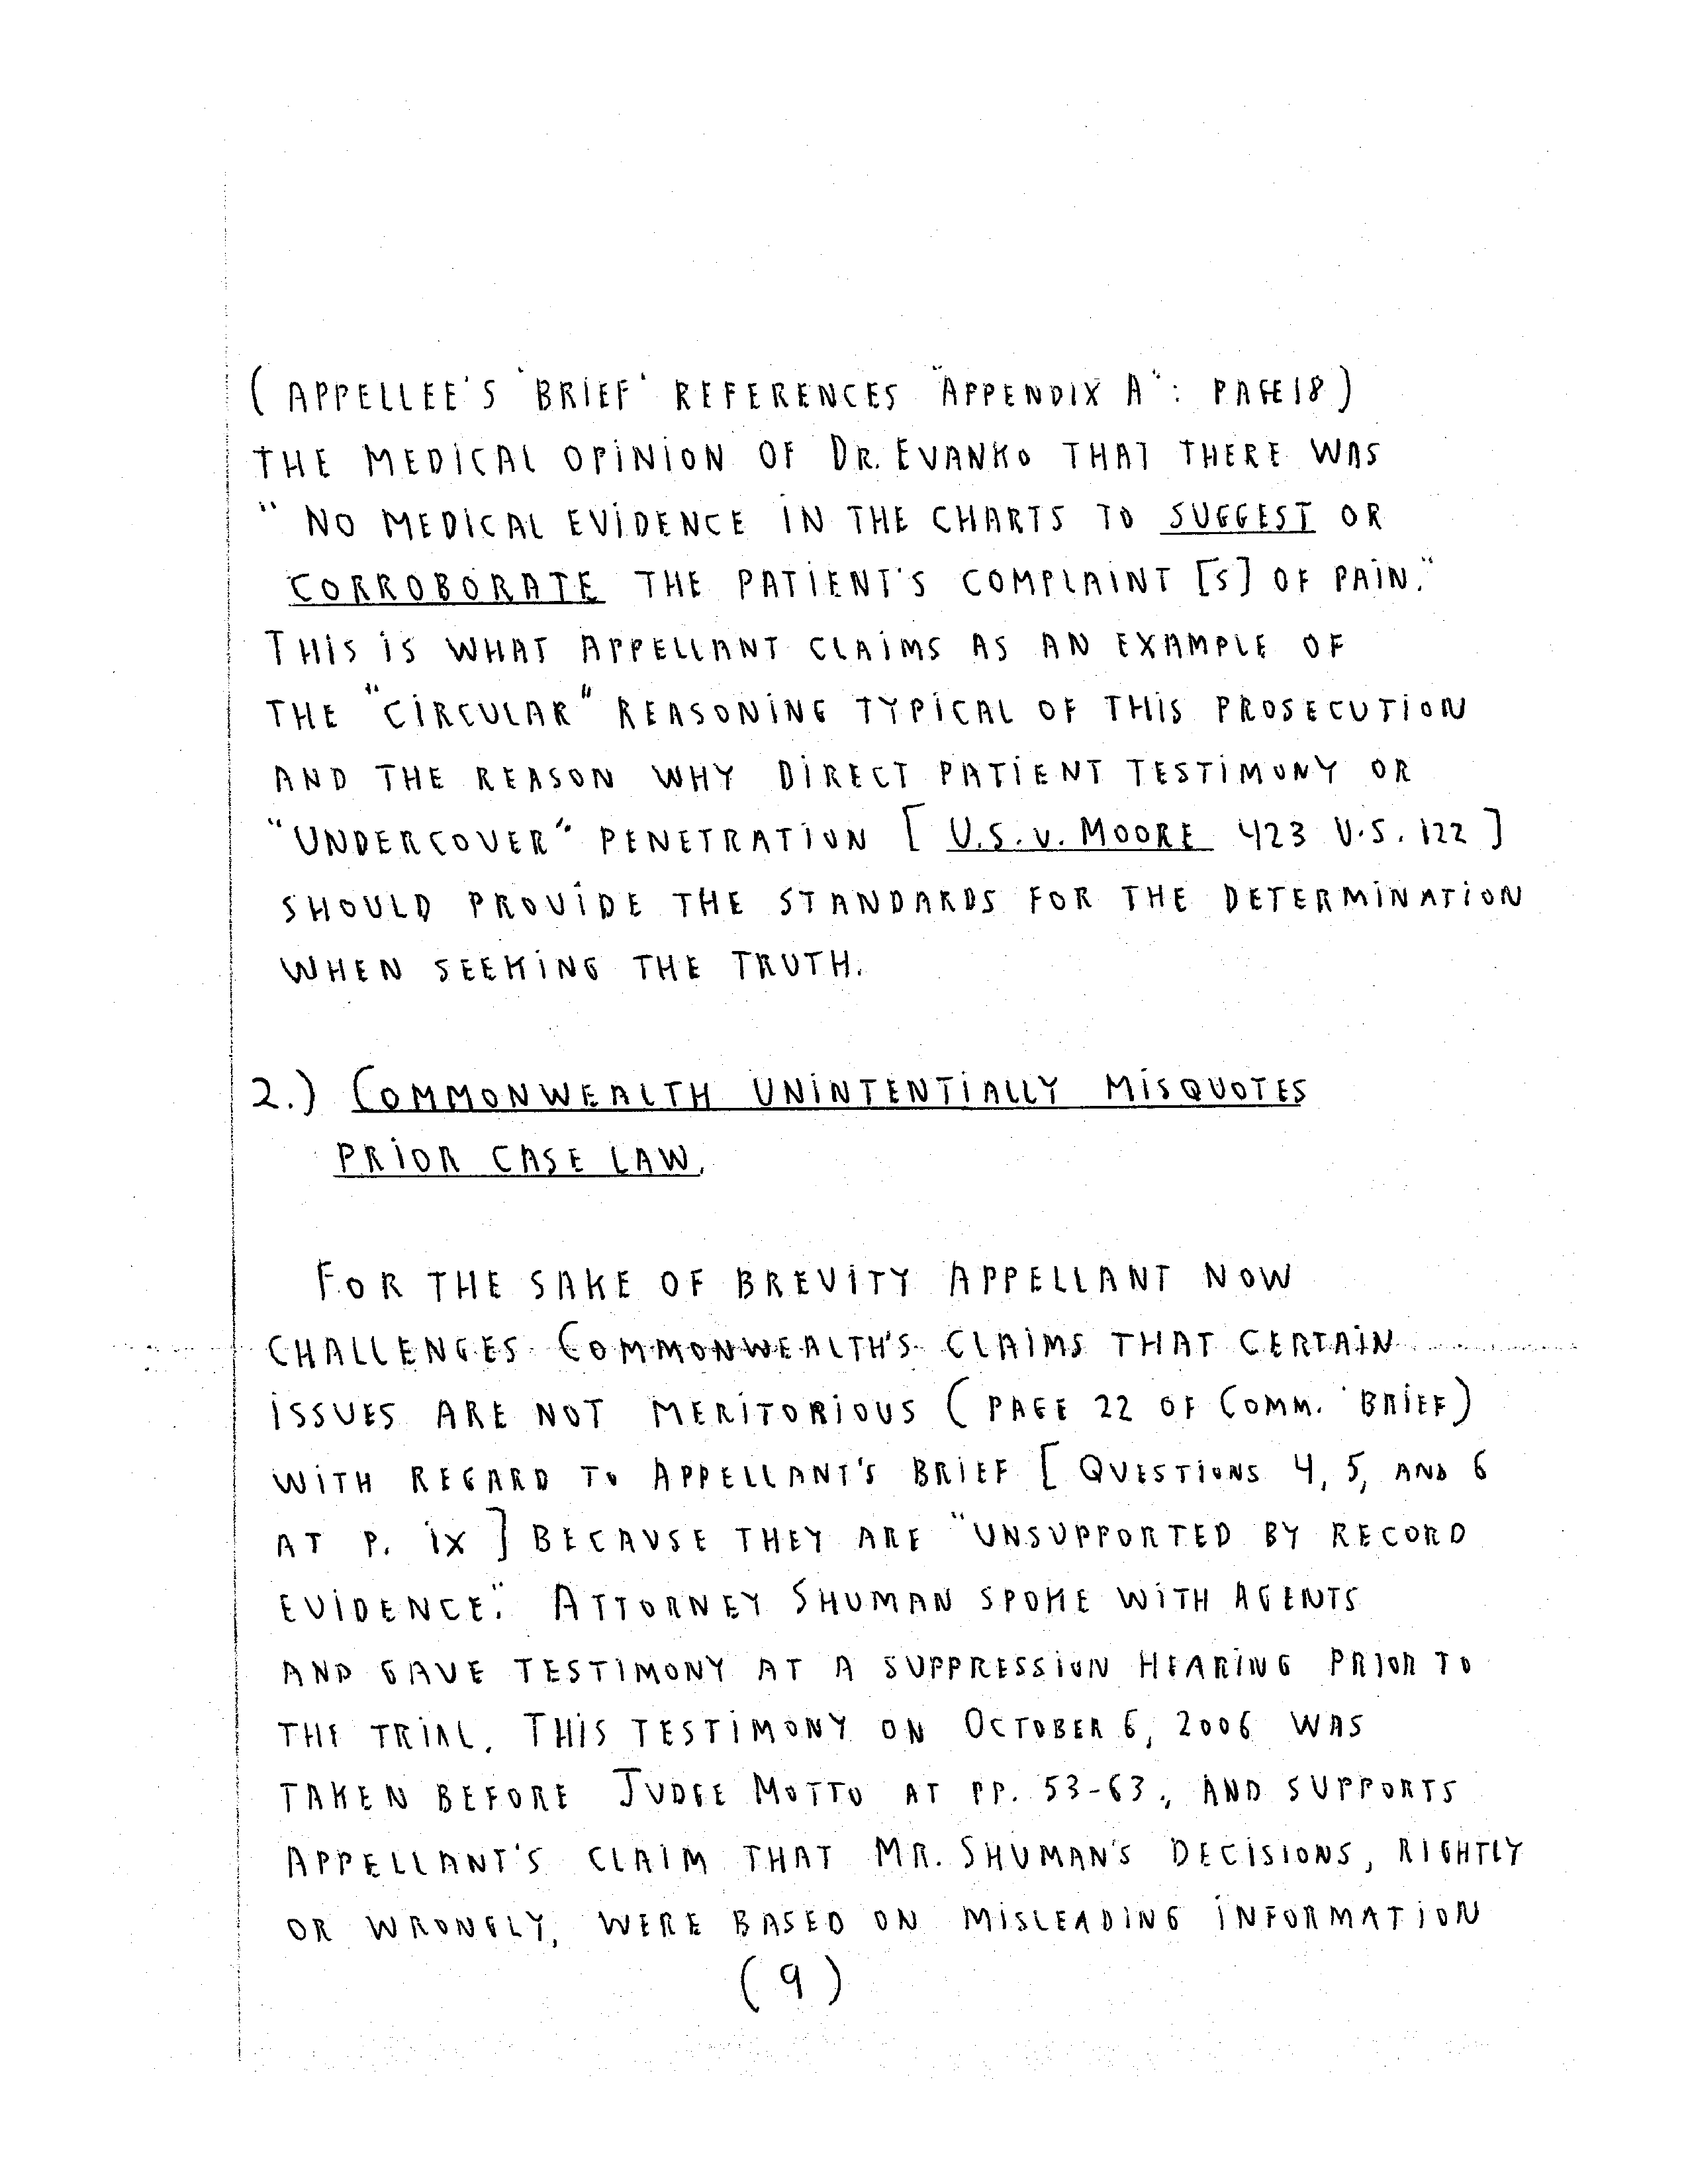 ( APPELLEE'S 'BRIEF' REFERENCES "APPENDIX A": PAGE 18 )
THE MEDICAL OPINION OF DR. EVANKO THAT THERE WAS
" NO MEDICAL EVIDENCE IN THE CHARTS TO SUGGEST OR
CORROBORATE THE PATIENT'S COMPLAINT [S] OF PAIN."
THIS IS WHAT APPELLANT CLAIMS AS AN EXAMPLE OF
THE "CIRCULAR" REASONING TYPICAL OF THIS PROSECUTION
AND THE REASON WHY DIRECT PATIENT TESTIMONY OR
"UNDERCOVER" PENETRATION [ U.S. v. MOORE 423 U.S. 122 ]
SHOULD PROVIDE THE STANDARDS FOR THE DETERMINATION
WHEN SEEKING THE TRUTH.
2.) COMMONWEALTH UNINTENTIALLY MISQUOTES
PRIOR CASE LAW.
FOR THE SAKE OF BREVITY APPELLANT NOW
CHALLENGES COMMONWEALTH'S CLAIMS THAT CERTAIN
ISSUES ARE NOT MERITORIOUS ( PAGE 22 OF COMM. 'BRIEF)
WITH REGARD TO APPELLANT'S BRIEF [ QUESTIONS 4, 5, AND 6
AT P. ix ] BECAUSE THEY ARE "UNSUPPORTED BY RECORD
EVIDENCE." ATTORNEY SHUMAN SPOKE WITH AGENTS
AND GAVE TESTIMONY AT A SUPPRESSION HEARING PRIOR TO
THE TRIAL. THIS TESTIMONY ON OCTOBER 6, 2006 WAS
TAKEN BEFORE JUDGE MOTTO AT PP. 53-63., AND SUPPORTS
APPELLANT'S CLAIM THAT MR. SHUMAN'S DECISIONS, RIGHTLY
OR WRONGLY, WERE BASED ON MISLEADING INFORMATION
(9)